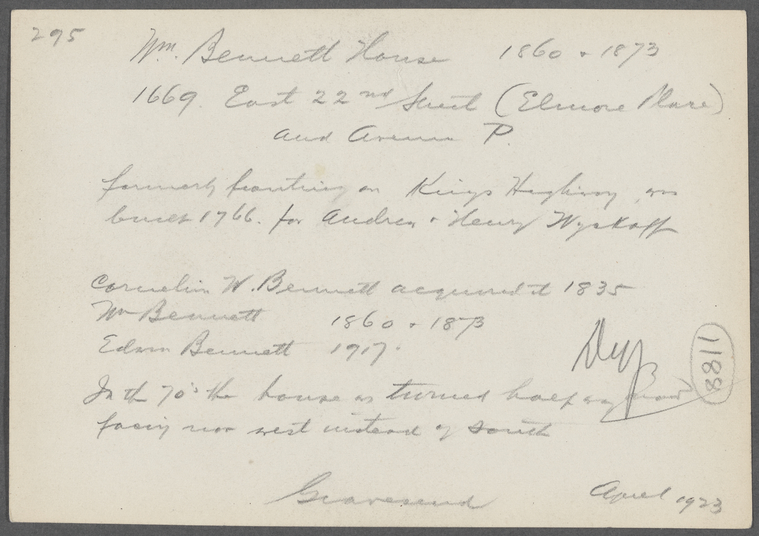 295
Wm. Bennett House 1860 & 1873
1669. East 22nd Street (Elmore Place)
and Avenue P.
formerly fronting on Kings Highway, was
built 1766. for Andrew & Henry Wyckoff
Cornelius W. Bennett acquired it 1835
Wm Bennett 1860 & 1873
Edwin Bennett 1917.
In the 70's the house was turned half way round
facing now west instead of south
1188
Gravesend April 1923